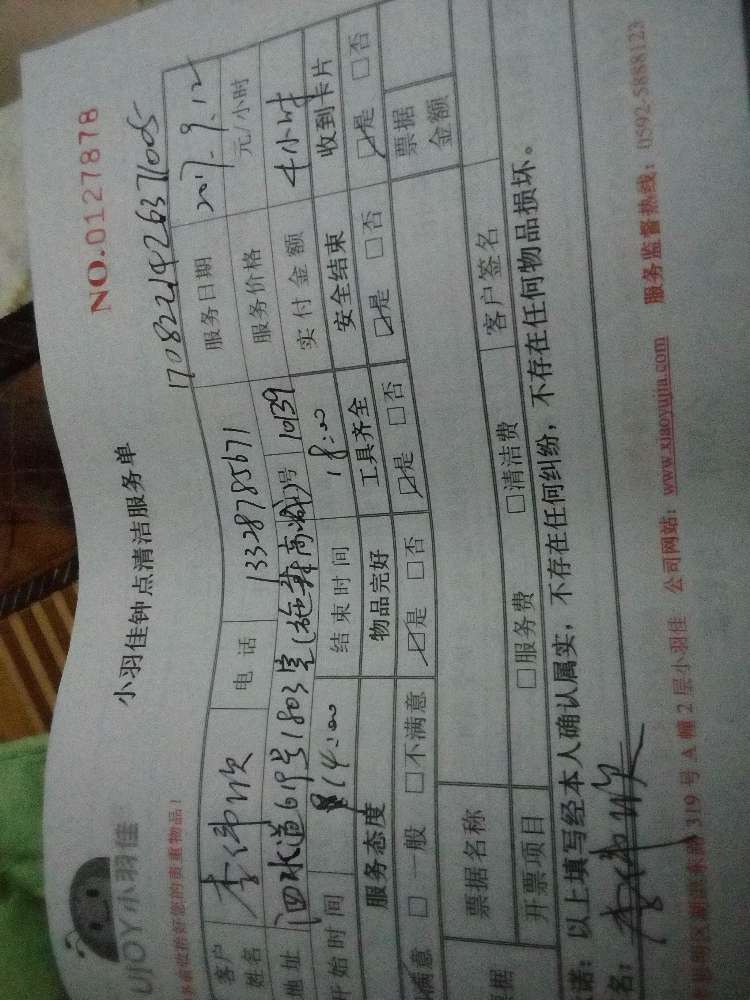 UJOY小羽佳
小羽佳钟点清洁服务单
NO.0127878
收拾好您的贵重物品!
17082214263711005
客户姓名 李伟欣 电话 13328785671 服务日期 2017.9.12
地址 泗水道619号1803室 号 10139 服务价格 元/小时
开始时间 14:00 结束时间 18:00 实付金额 4小时
服务态度 物品完好 工具齐全 安全结束 收到卡片
满意 □一般 □不满意 ☑是 □否 ☑是 □否 ☑是 □否 ☑是 □否
票据 票据名称 票据金额
开票项目 □服务费 □清洁费 客户签名
诺:以上填写经本人确认属实,不存在任何纠纷,不存在任何物品损坏。
名: 李伟欣
319号A幢2层小羽佳 公司网站:www.xiaoyujia.com 服务监督热线:0592-5888123